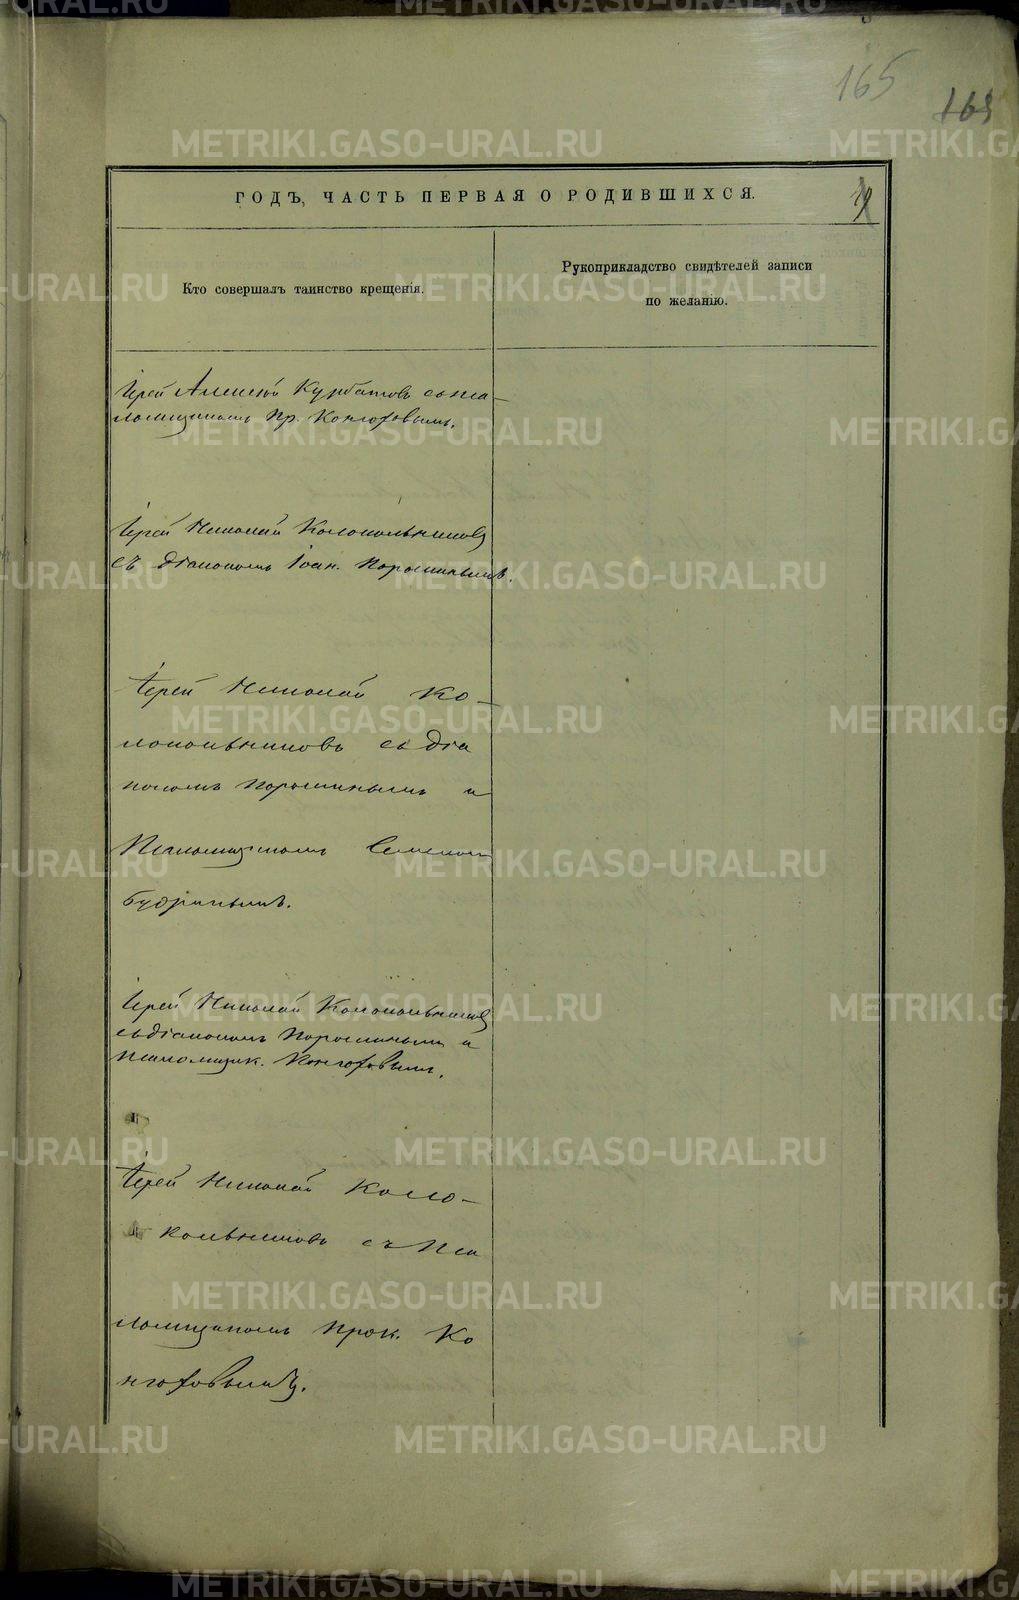 METRIKI.GASO-URAL.RU
165
165
ГОДЪ, ЧАСТЬ ПЕРВАЯ О РОДИВШИХСЯ.
Кто совершалъ таинство крещенія.
Рукоприкладство свидѣтелей записи
по желанію.
Іерей Алексѣй Курбатовъ съ пса-
ломщикомъ Пр. Конюховымъ.
Іерей Николай Колокольниковъ
съ діакономъ Іоан. Порошинымъ.
Іерей Николай Ко-
локольниковъ съ діа
кономъ Порошинымъ и
Псаломщикомъ
Іерей Николай Колокольниковъ
съ діакономъ Порошинымъ и
псаломщик. Конюховымъ.
Іерей Николай Коло-
кольниковъ съ пса
ломщикомъ Прок. Ко
нюховымъ.